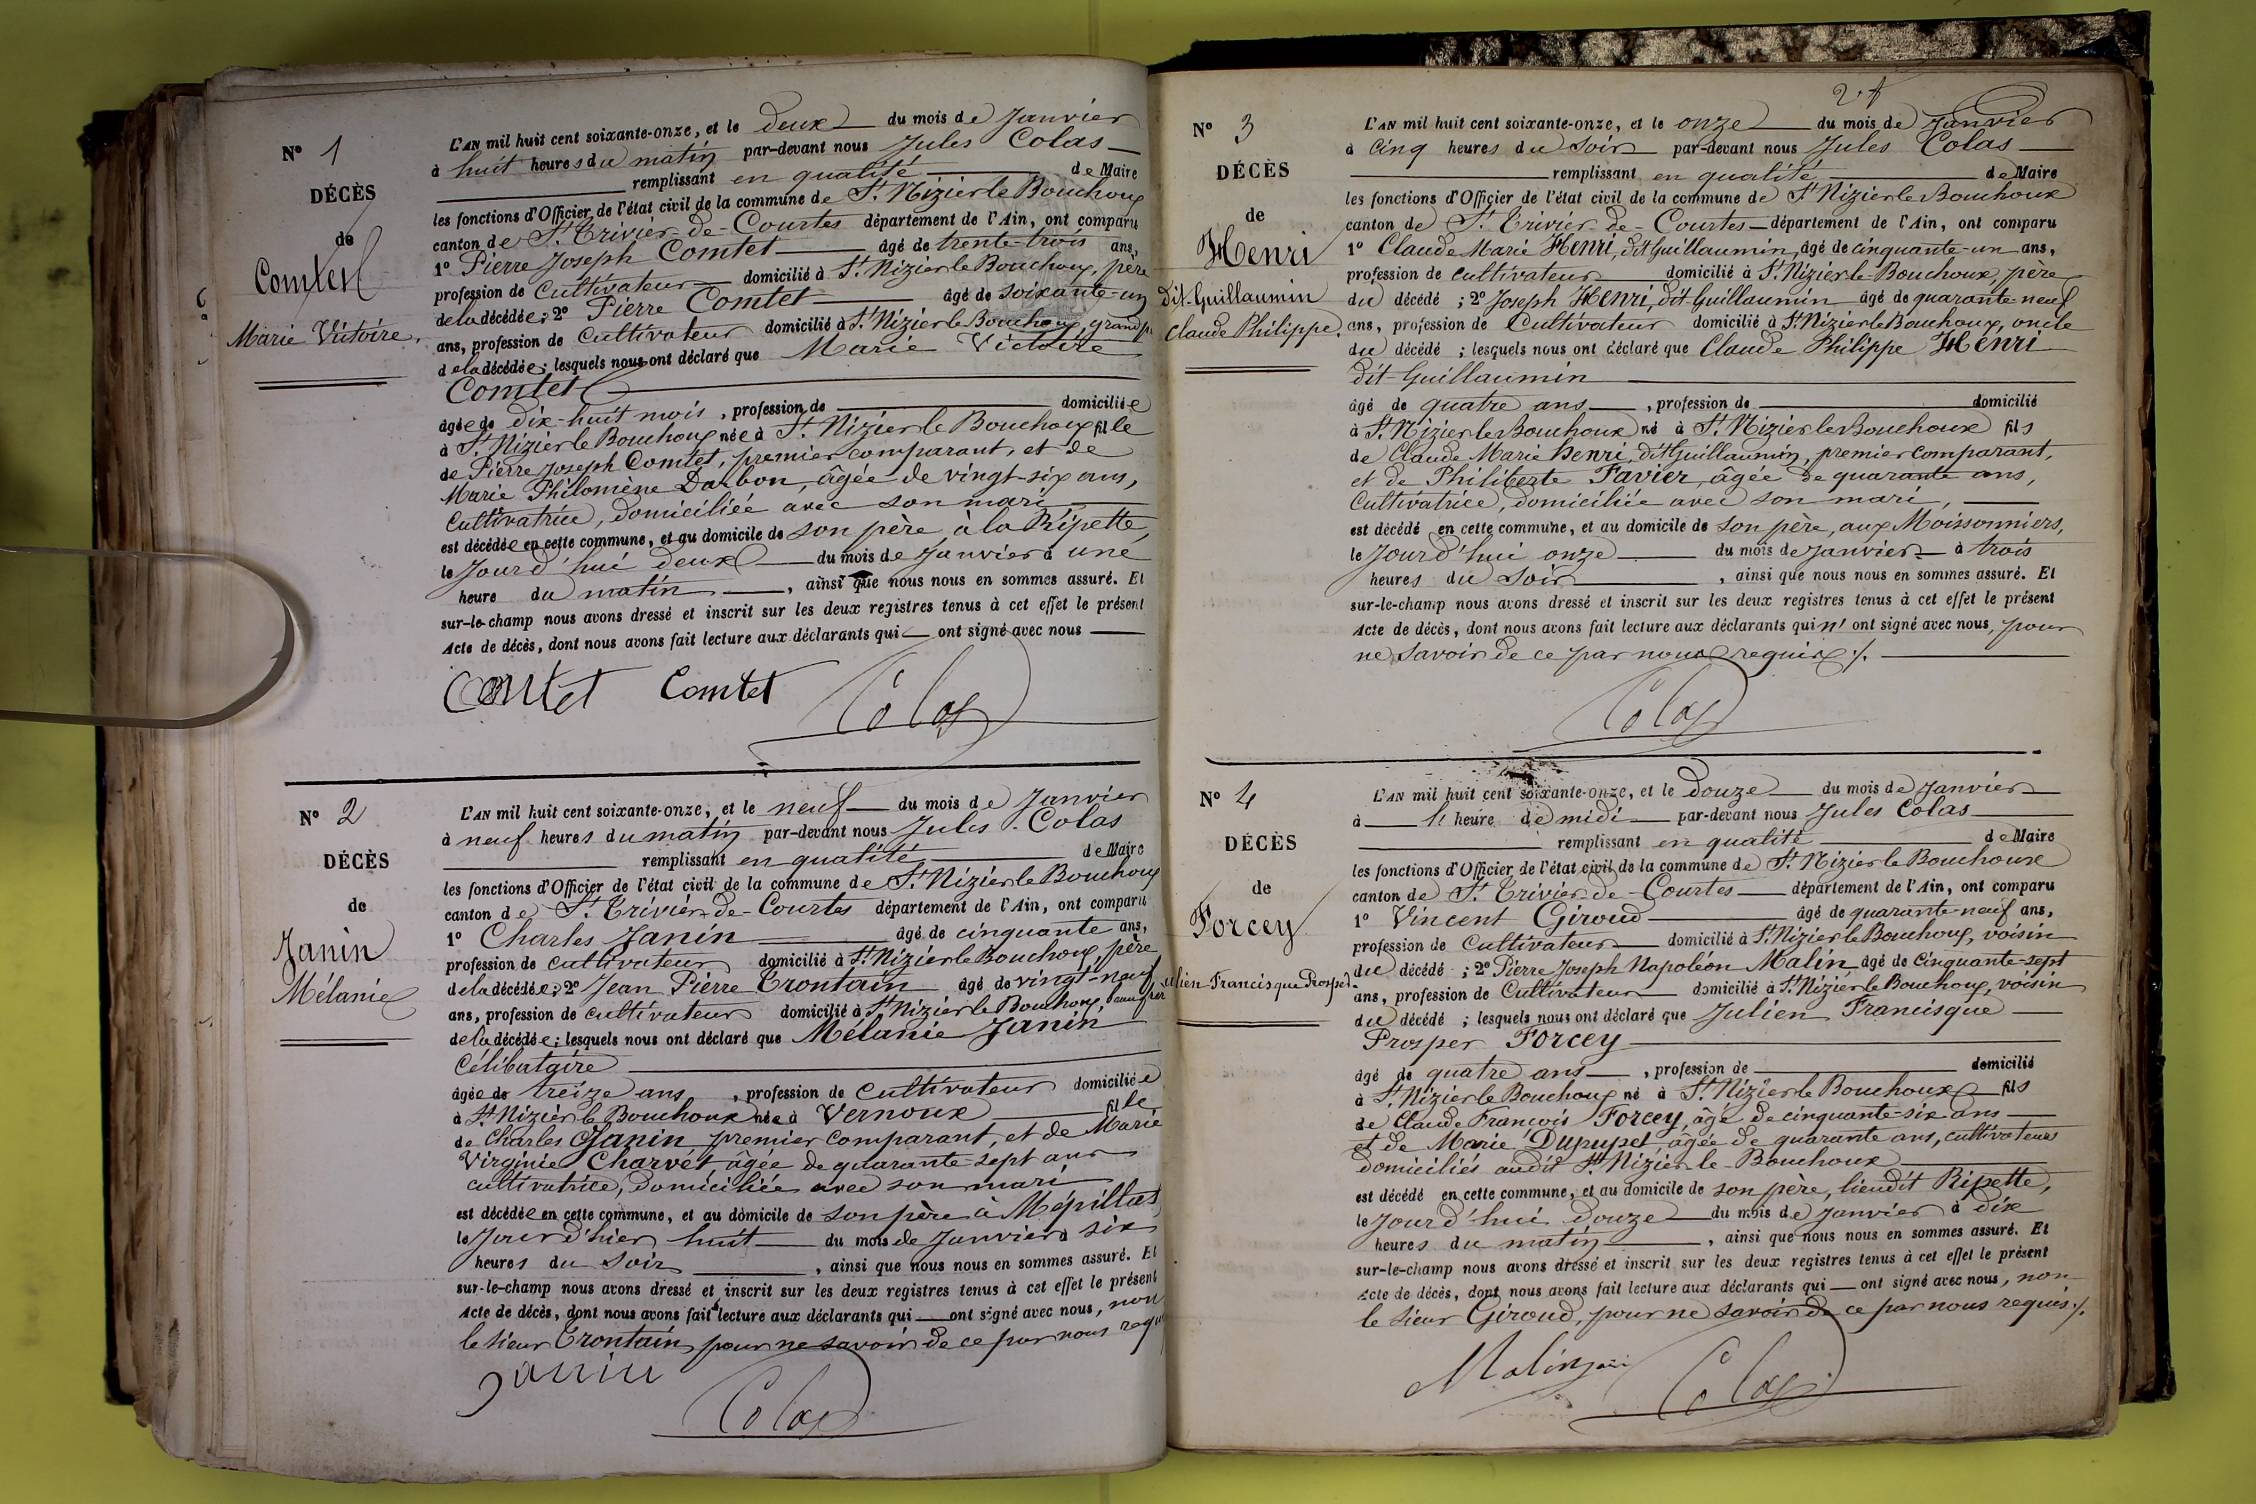 N° 1
DÉCÈS
de
Comtet
Marie Victoire.
L'AN mil huit cent soixante-onze, et le deux du mois de Janvier
à huit heures du matin par-devant nous Jules Colas
remplissant en qualité de Maire
les fonctions d'Officier de l'état civil de la commune de St Nizier le Bouchoux
canton de St Trivier-de-Courtes département de l'Ain, ont comparu
1° Pierre Joseph Comtet âgé de trente-trois ans,
profession de cultivateur domicilié à St Nizier le Bouchoux, père
de la décédée; 2° Pierre Comtet âgé de soixante-un
ans, profession de cultivateur domicilié à St Nizier le Bouchoux, grand p
de la décédée; lesquels nous ont déclaré que Marie Victoire
Comtet
âgée de dix-huit mois, profession de domiciliée
à St Nizier le Bouchoux née à St Nizier le Bouchoux fille
de Pierre Joseph Comtet, premier comparant, et de
Marie Philomène Darbon, âgée de vingt-six ans,
cultivatrice, domiciliée avec son mari
est décédée en cette commune, et au domicile de son père, à la Ripette,
le Jourd'hui deux du mois de Janvier à une
heure du matin, ainsi que nous nous en sommes assuré. Et
sur-le-champ nous avons dressé et inscrit sur les deux registres tenus à cet effet le présent
Acte de décès, dont nous avons fait lecture aux déclarants qui ont signé avec nous
Comtet Comtet Colas
N° 2
DÉCÈS
de
Janin
Mélanie
L'AN mil huit cent soixante-onze, et le neuf du mois de Janvier
à neuf heures du matin par-devant nous Jules Colas
remplissant en qualité de Maire
les fonctions d'Officier de l'état civil de la commune de St Nizier le Bouchoux
canton de St Trivier-de-Courtes département de l'Ain, ont comparu
1° Charles Janin âgé de cinquante ans,
profession de cultivateur domicilié à St Nizier le Bouchoux, père
de la décédée; 2° Jean Pierre Trontain âgé de vingt-neuf
ans, profession de cultivateur domicilié à St Nizier le Bouchoux, beau frère
de la décédée; lesquels nous ont déclaré que Mélanie Janin,
Célibataire
âgée de treize ans, profession de cultivateur domiciliée
à St Nizier le Bouchoux née à Vernoux fille
de Charles Janin premier comparant, et de Marie
Virginie Charvet, âgée de quarante-sept ans
cultivatrice, domiciliée avec son mari
est décédée en cette commune, et au domicile de son père à Mépillat
le Jour d'hier huit du mois de Janvier à six
heures du soir, ainsi que nous nous en sommes assuré. Et
sur-le-champ nous avons dressé et inscrit sur les deux registres tenus à cet effet le présent
Acte de décès, dont nous avons fait lecture aux déclarants qui ont signé avec nous, non
le sieur Trontain, pour ne savoir de ce par nous requ
Janin
Colas
N° 3
DÉCÈS
de
Henri
dit-Guillaumin
Claude Philippe.
L'AN mil huit cent soixante-onze, et le onze du mois de Janvier
à cinq heures du soir par-devant nous Jules Colas
remplissant en qualité de Maire
les fonctions d'Officier de l'état civil de la commune de St Nizier le Bouchoux
canton de St Trivier-de-Courtes département de l'Ain, ont comparu
1° Claude Marie Henri, dit Guillaumin, âgé de cinquante-un ans,
profession de cultivateur domicilié à St Nizier le Bouchoux, père
du décédé; 2° Joseph Henri, dit Guillaumin âgé de quarante-neuf
ans, profession de Cultivateur domicilié à St Nizier le Bouchoux, oncle
du décédé; lesquels nous ont déclaré que Claude Philippe Henri
dit-Guillaumin
âgé de quatre ans, profession de domicilié
à St Nizier le Bouchoux né à St Nizier le Bouchoux fils
de Claude Marie Henri, dit Guillaumin, premier comparant,
et de Philiberte Favier, âgée de quarante ans,
Cultivatrice, domiciliée avec son mari,
est décédé en cette commune, et au domicile de son père, aux Moissonniers,
le Jourd'hui onze du mois de Janvier à trois
heures du soir, ainsi que nous nous en sommes assuré. Et
sur-le-champ nous avons dressé et inscrit sur les deux registres tenus à cet effet le présent
Acte de décès, dont nous avons fait lecture aux déclarants qui n' ont signé avec nous, pour
ne savoir de ce par nous requis ./.
Colas
N° 4
DÉCÈS
de
Forcey
ulien Francisque Prosper.
L'AN mil huit cent soixante-onze, et le douze du mois de Janvier
à l' heure de midi par-devant nous Jules Colas
remplissant en qualité de Maire
les fonctions d'Officier de l'état civil de la commune de St Nizier le Bouchoux
canton de St Trivier-de-Courtes département de l'Ain, ont comparu
1° Vincent Giroud âgé de quarante-neuf ans,
profession de cultivateur domicilié à St Nizier le Bouchoux, voisin
du décédé; 2° Pierre Joseph Napoléon Malin âgé de cinquante-sept
ans, profession de Cultivateur domicilié à St Nizier le Bouchoux, voisin
du décédé; lesquels nous ont déclaré que Julien Francisque
Prosper Forcey
âgé de quatre ans, profession de domicilié
à St Nizier le Bouchoux né à St Nizier le Bouchoux fils
de Claude François Forcey, âgé de cinquante-six ans
et de Marie Dupupet âgée de quarante ans, cultivateurs
domiciliés audit St Nizier-le-Bouchoux
est décédé en cette commune, et au domicile de son père, lieudit Ripette,
le Jourd'hui douze du mois de Janvier à dix
heures du matin, ainsi que nous nous en sommes assuré. Et
sur-le-champ nous avons dressé et inscrit sur les deux registres tenus à cet effet le présent
Acte de décès, dont nous avons fait lecture aux déclarants qui ont signé avec nous, non
le sieur Giroud, pour ne savoir de ce par nous requis ./.
Malin Colas